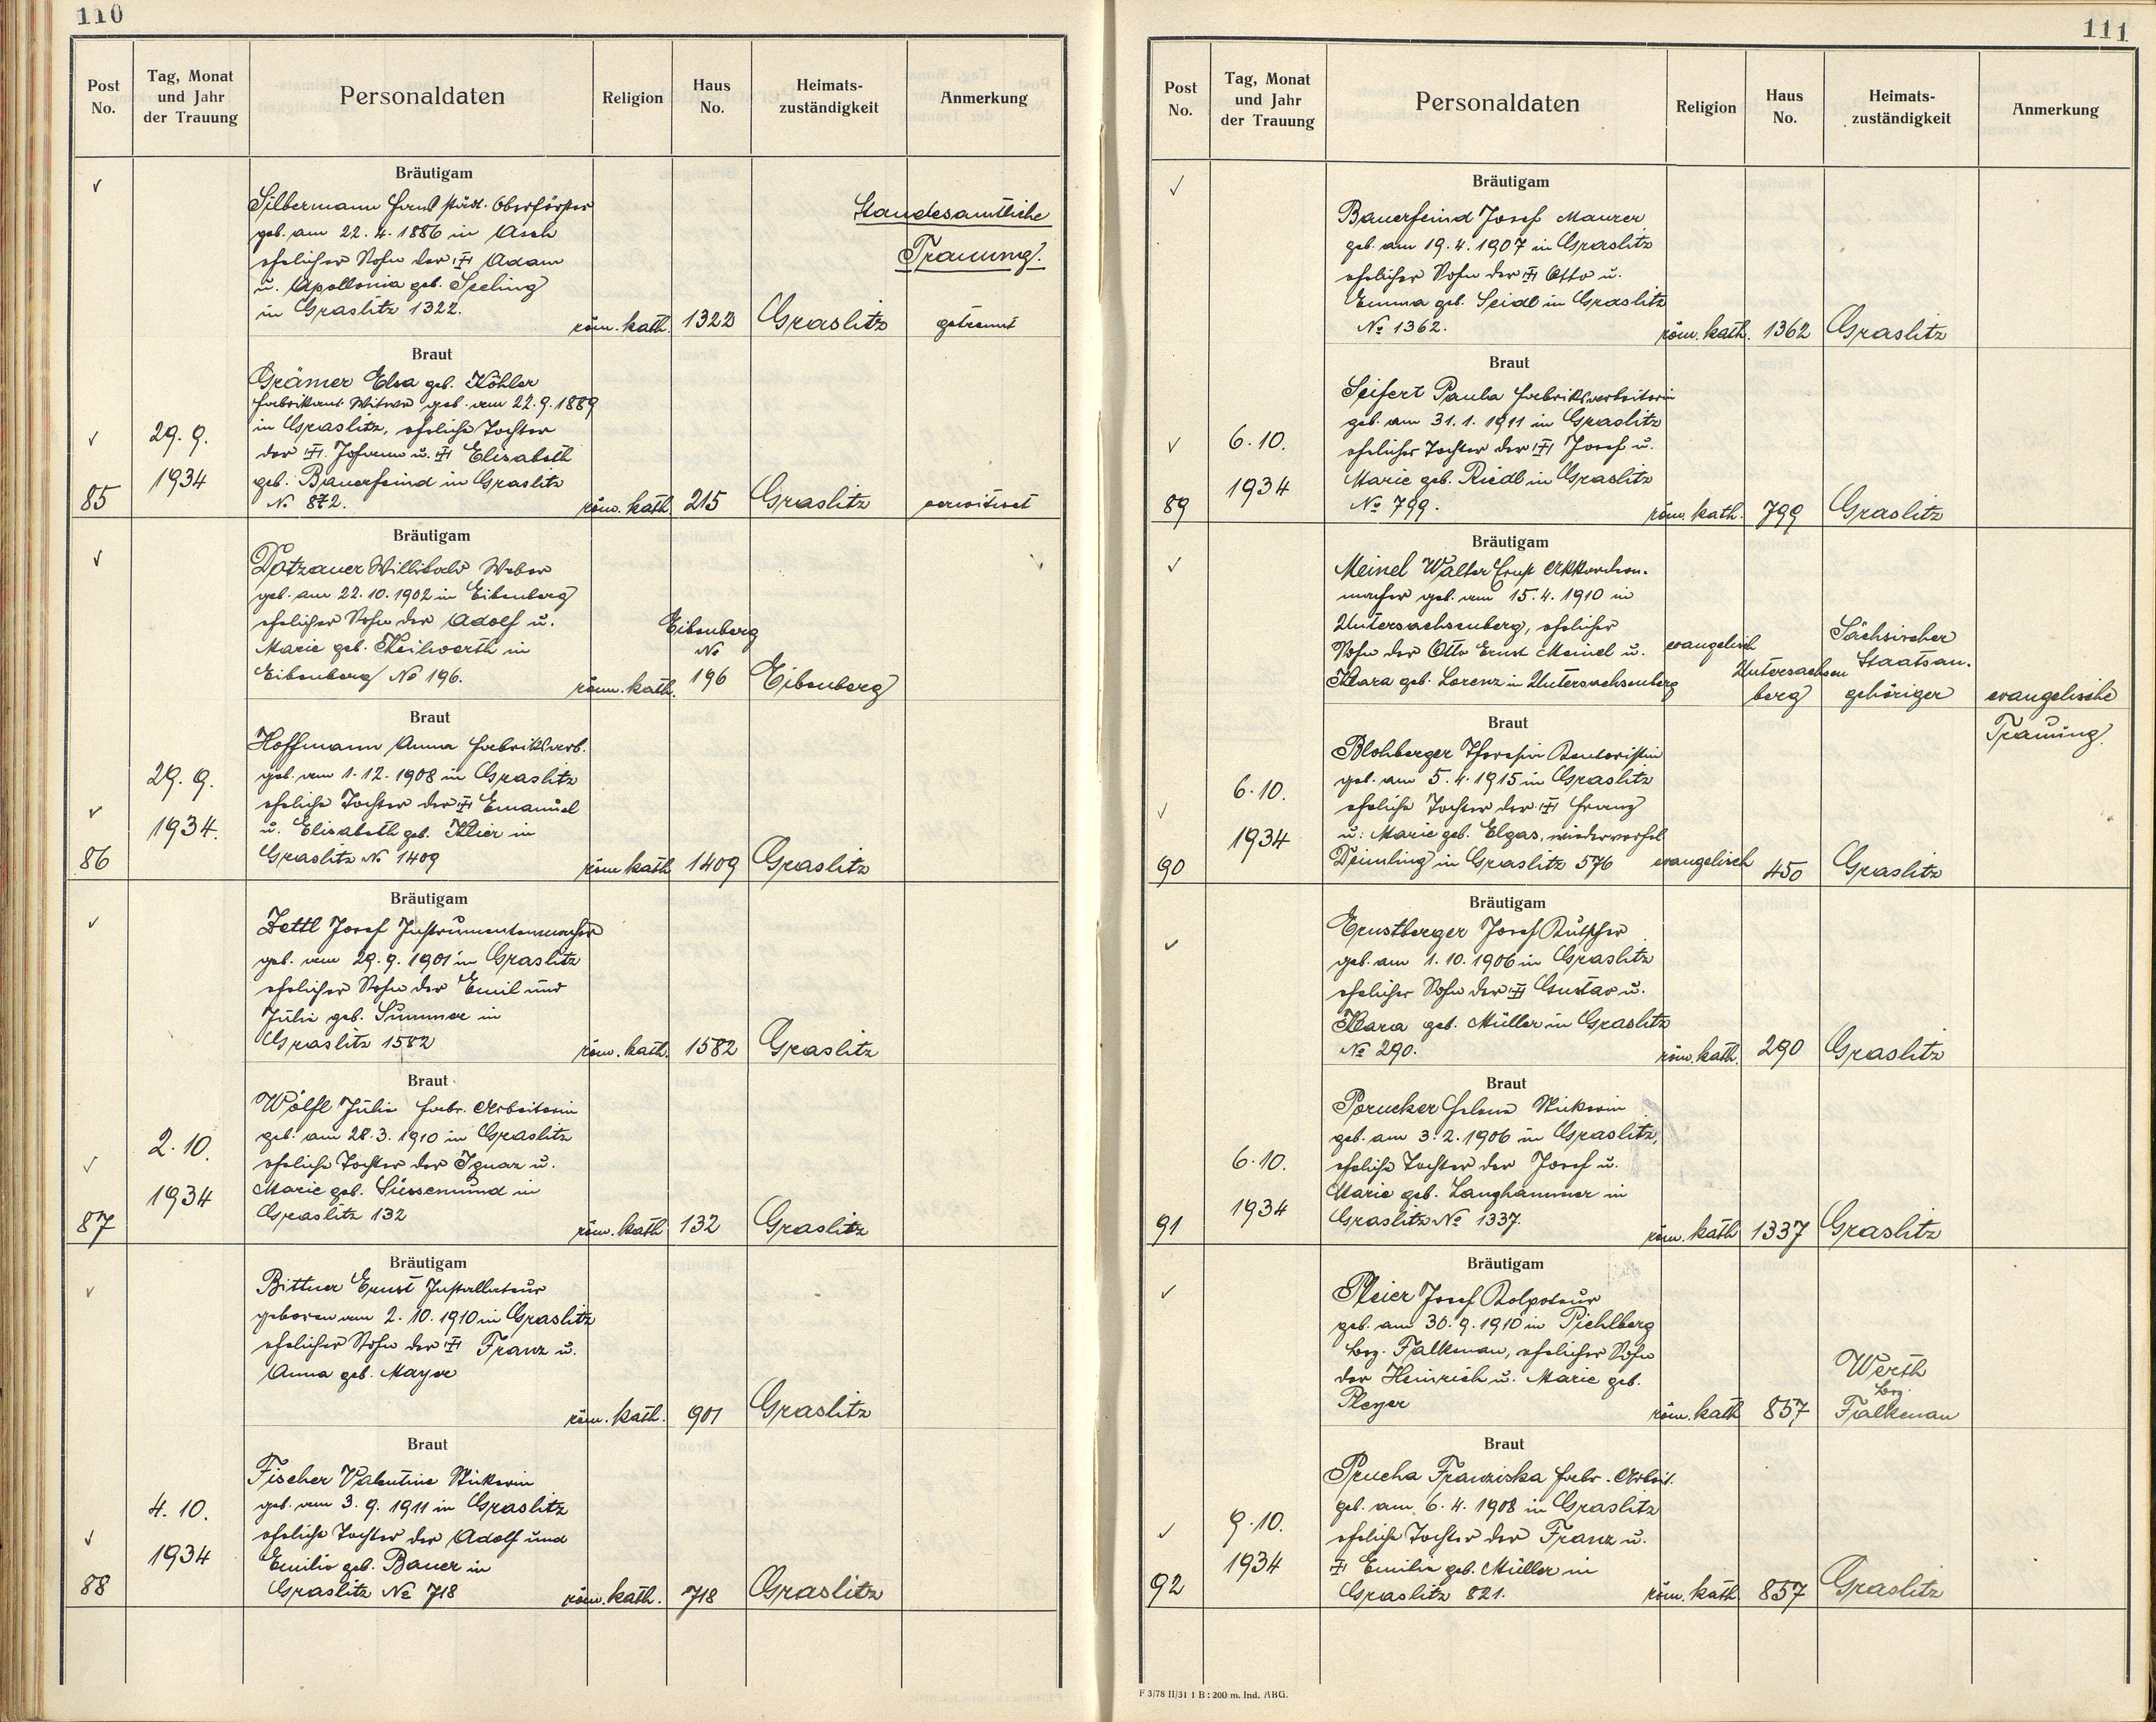 110
Post No.
Tag, Monat und Jahr der Trauung
Personaldaten
Religion
Haus No.
Heimats-zuständigkeit
Anmerkung
Bräutigam
Silbermann Ernst städt. Oberförster
geb. am 22. 4. 1886 in Asch
ehelicher Sohn der Adam
u. Apollonia geb. Seeling
in Graslitz 1322.
röm. kath. 1322 Graslitz getrennt
Standesamtliche
Trauung.
Braut
Grämer Elsa geb. Köhler
Fabrikant. Witwe geb. am 22. 9. 1889
in Graslitz, eheliche Tochter
der Johann u. Elisabeth
geb. Bauerfeind in Graslitz
No 872.
85
29. 9.
1934
röm. kath. 215 Graslitz verwitwet
Bräutigam
Dotzauer Willibald Weber
geb. am 22. 10. 1902 in Eibenberg
ehelicher Sohn der Adolf u.
Marie geb. Keilwerth in
Eibenberg No 196.
röm. kath.
Eibenberg
No
196
Eibenberg
Braut
Hoffmann Anna Fabriksarb.
geb. am 1. 12. 1908 in Graslitz
eheliche Tochter der Emanuel
u. Elisabeth geb. Klier in
Graslitz No 1409
86
29. 9.
1934.
röm kath 1409 Graslitz
Bräutigam
Zettl Josef Instrumentenmacher
geb. am 29. 9. 1901 in Graslitz
ehelicher Sohn der Emil und
Julie geb. Summer in
Graslitz 1582
röm. kath. 1582 Graslitz
Braut
Wölfl Julie Fabr. Arbeiterin
geb. am 28. 3. 1910 in Graslitz
eheliche Tochter der Ignaz u.
Marie geb. Süssemund in
Graslitz 132
87
2. 10.
1934
röm. kath 132 Graslitz
Bräutigam
Bittner Ernst Installateur
geboren am 2. 10. 1910 in Graslitz
ehelicher Sohn der Franz u.
Anna geb. Mayer
röm. kath. 901 Graslitz
Braut
Fischer Valentine Stickerin
geb. am 3. 9. 1911 in Graslitz
eheliche Tochter der Adolf und
Emilie geb. Bauer in
Graslitz No 718
88
4. 10.
1934
röm. kath. 718 Graslitz
111
Post No.
Tag, Monat und Jahr der Trauung
Personaldaten
Religion
Haus No.
Heimats-zuständigkeit
Anmerkung
Bräutigam
Bauerfeind Josef Maurer
geb. am 19. 4. 1907 in Graslitz
ehelicher Sohn der Otto u.
Emma geb. Seidl in Graslitz
No 1362.
röm. kath. 1362 Graslitz
Braut
Seifert Paula Fabriksarbeiterin
geb. am 31. 1. 1911 in Graslitz
ehelicher Tochter der Josef u.
Marie geb. Riedl in Graslitz
No 799.
89
6. 10.
1934
röm. kath. 799 Graslitz
Bräutigam
Meinel Walter Ernst Akkordeon-
macher geb. am 15. 4. 1910 in
Untersachsenberg, ehelicher
Sohn der Otto Ernst Meinel u.
Klara geb. Lorenz in Untersachsenberg
evangelisch
Untersachsen
berg
Sächsischer
Staatsan-
gehöriger
evangelische
Trauung.
Braut
Blohberger Kontoristin
geb. am 5. 4. 1915 in Graslitz
eheliche Tochter der Franz
u. Marie geb. Elgas, wiederverehel.
Deimling in Graslitz 576
90
6. 10.
1934
evangelisch 450 Graslitz
Bräutigam
Ernstberger Josef Kutscher
geb. am 1. 10. 1906 in Graslitz
ehelicher Sohn der Gustav u.
Klara geb. Müller in Graslitz
No 290.
röm. kath. 290 Graslitz
Braut
Porucker Helene Stickerin
geb. am 3. 2. 1906 in Graslitz,
eheliche Tochter der Josef u.
Marie geb. Langhammer in
Graslitz No 1337.
91
6. 10.
1934
röm. kath 1337 Graslitz
Bräutigam
Pleier Josef Kolporteur
geb. am 30. 9. 1910 in Pichlberg
bez. Falkenau, ehelicher Sohn
der Heinrich u. Marie geb.
Pleyer
röm. kath 857
Werth
bez.
Falkenau
Braut
Prucha Franziska Fabr. Arbeit.
geb. am 6. 4. 1908 in Graslitz
eheliche Tochter der Franz u.
Emilie geb. Müller in
Graslitz 821.
92
9. 10.
1934
röm. kath. 857 Graslitz
F 3/78 II/31 1 B : 200 m. Ind. ABG.